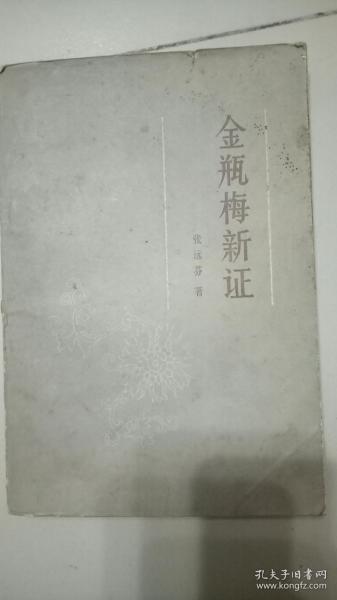 金瓶梅新证
张远芬 著
孔夫子旧书网
www.kongfz.com